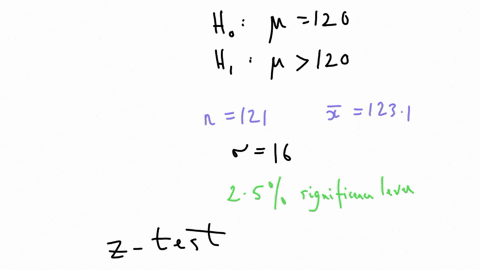 H₀: μ = 120
H₁: μ > 120
n = 121 x̄ = 123.1
σ = 16
2.5% significance level
z-test